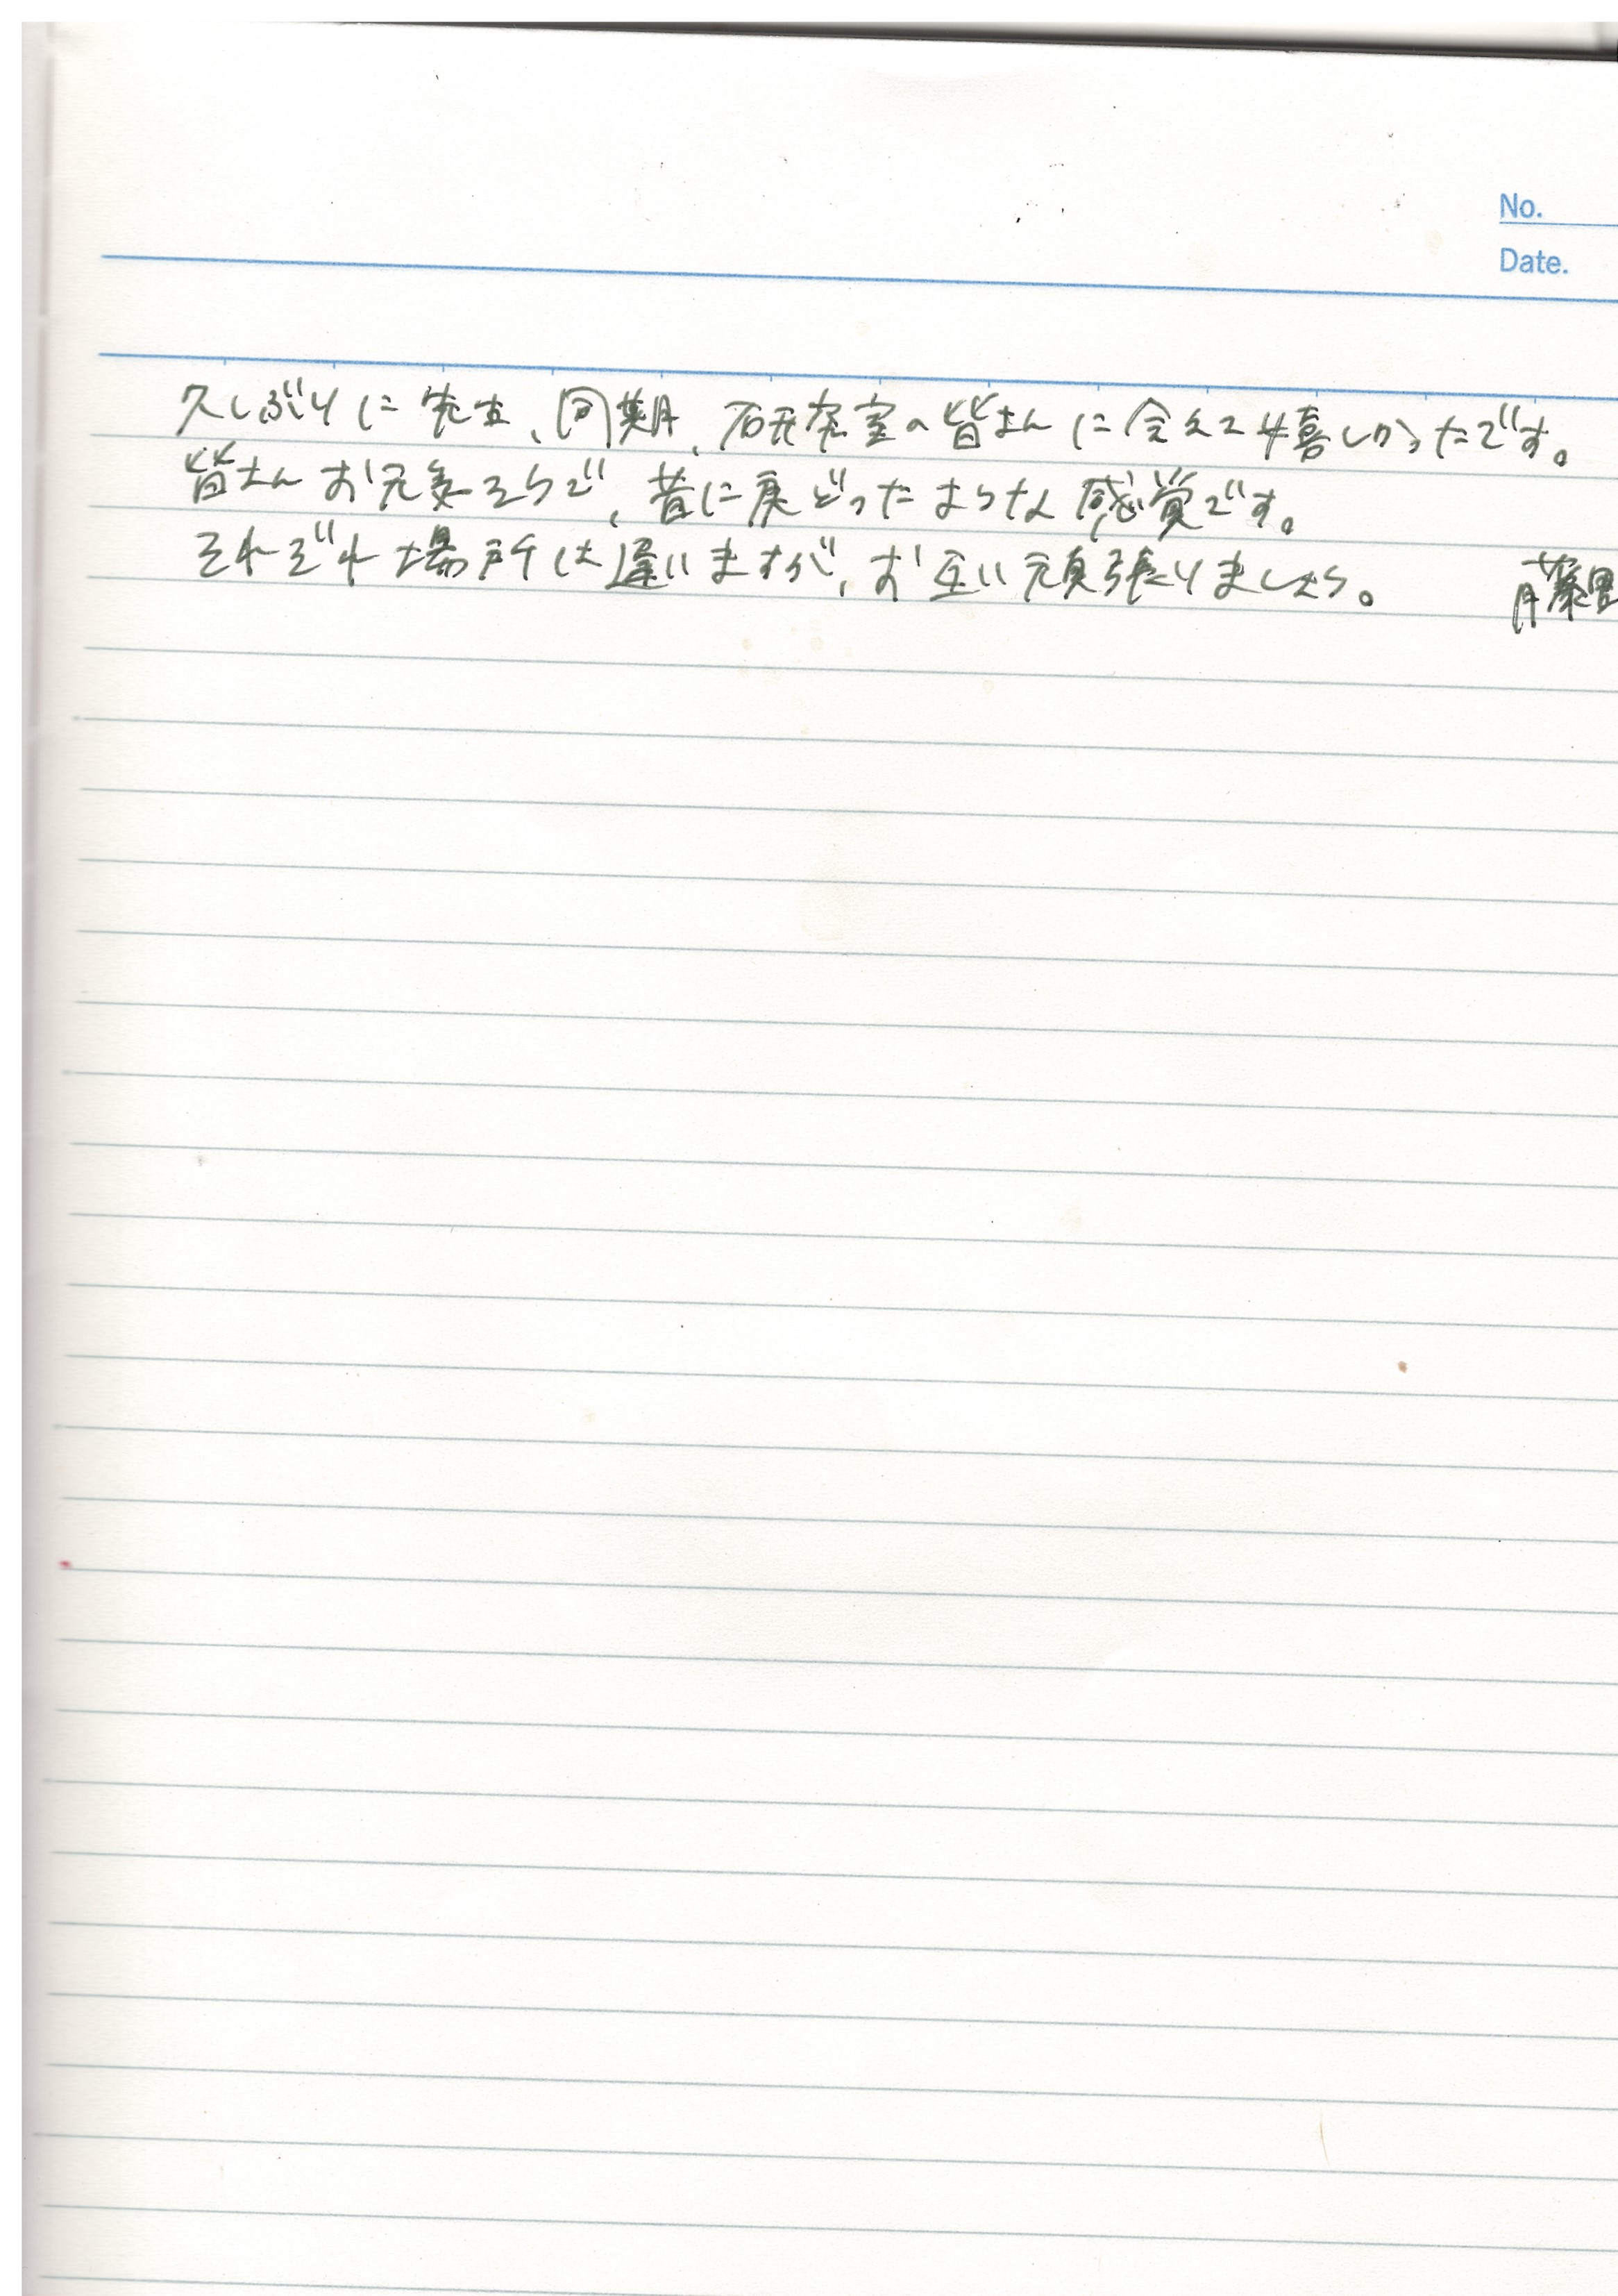 No.
Date.
久しぶりに先生、同期、研究室の皆さんに会えて嬉しかったです。
皆さんお元気そうで、昔に戻どったような感覚です。
それぞれ場所は違いますが、お互い頑張りましょう。 藤